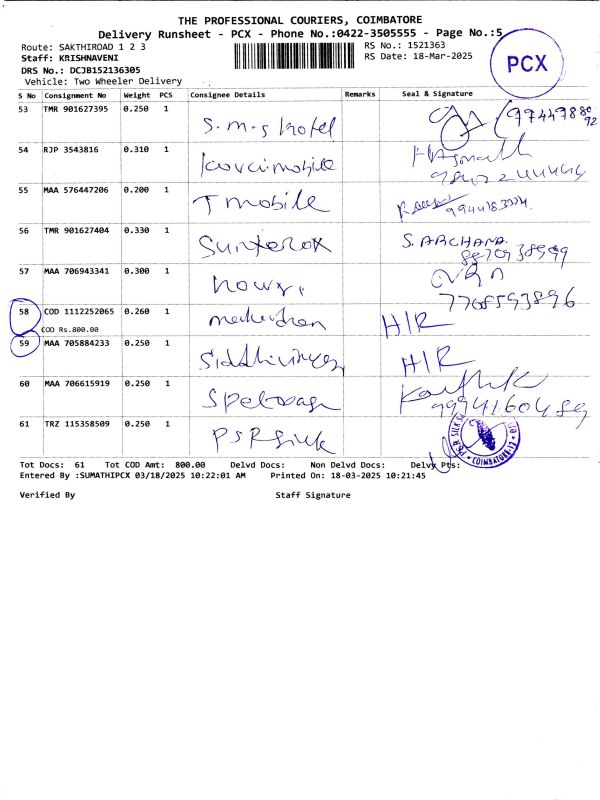 THE PROFESSIONAL COURIERS, COIMBATORE
Delivery Runsheet - PCX - Phone No.:0422-3505555 - Page No.:5
Route: SAKTHIROAD 1 2 3
RS No.: 1521363
Staff: KRISHNAVENI
RS Date: 18-Mar-2025
DRS No.: DCJB152136305
Vehicle: Two Wheeler Delivery
PCX
S No Consignment No Weight PCS Consignee Details Remarks Seal & Signature
53 TMR 901627395 0.250 1 S.M.S Hotel
54 RJP 3543816 0.310 1 mobile
55 MAA 576447206 0.200 1 T mobile
56 TMR 901627404 0.330 1 S. ARCHANA
57 MAA 706943341 0.300 1
7708593896
58 COD 1112252065 0.260 1 H/R
COD Rs.800.00
59 MAA 705884233 0.250 1 H/R
60 MAA 706615919 0.250 1 Karthik
9994160489
61 TRZ 115358509 0.250 1 PSR Silk
Tot Docs: 61 Tot COD Amt: 800.00 Delvd Docs: Non Delvd Docs: Delvy Pts:
Entered By :SUMATHIPCX 03/18/2025 10:22:01 AM Printed On: 18-03-2025 10:21:45
Verified By Staff Signature